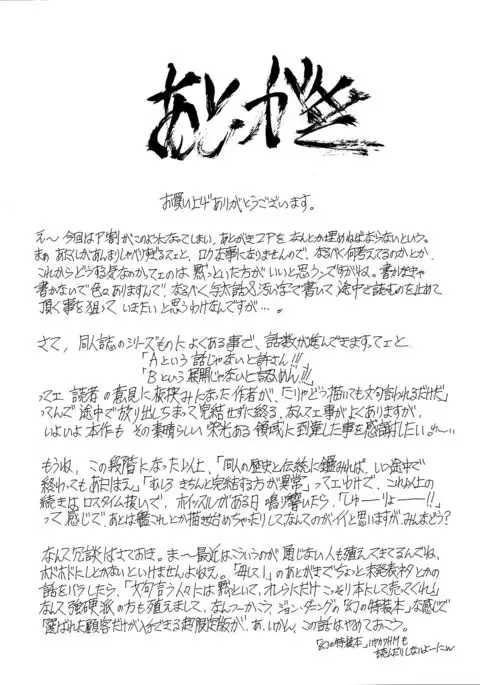 あとがき
お買い上げありがとうございます。
え〜今回はP割がこのようになってしまい、あとがき2Pを なんとか埋めねばならないという。
まぁ あたしがあんまりしゃべりすぎるってェと、ロクな事になりませんので、なるべく何考えてるのかとか、
これからどうする気なのかってェのは 黙っといた方がいいと思うってすがりね。書かなきゃ
書かないで色々ありますんで、なるべく与太話&汚い字で書いて 途中で読むのを止めて
頂く事を狙って いきたいと思うわけなんですが…。
さて、同人誌のシリーズものによくある事で、話数が進んできますってェと
「Aという話じゃないと許さん!!!」
「Bという展開じゃないと認めん!!!」
ってェ 読者の意見に板挟みになった作者が、「こりゃどう描いても文句言われるだけだ」
ってんで 途中で放り出しちまって完結せずに終る、なんてェ事がよくありますが、
いよいよ本作も その素晴らしい栄光ある領域に到達した事を感謝したいっ〜
もうね、この段階になった以上、「同人の歴史と伝統に鑑みれば、いつ途中で
終わってもあたりまえ」「むしろ きちんと完結する方が異常」ってェわけで、これ以上の
続きはロスタイム扱いで、ホイッスルがある日 鳴り響いたら、「しゅーりょー!!」
って感じで、あとは艦これとか描き始めちゃったりしてなんてのがイイと思いますが、みんなどう?
なんて冗談はさておき。ま〜最近はこういうのが 通じない人も殖えてきてるんでね、
ホドホドにしとかないといけませんよねえ。「毎して1」のあとがきでちょっと未発表ネタとかの
話をバラしたら、「文句言う人々には黙といて、オレらにだけこっそり本として売ってくれ」
なんて強硬派の方も殖えまして、なんつーかこう ジョン・ダニングの「幻の特装本」な感じで
「選ばれた顧客だけが入手できる超限定版が」、あ、いかん、この話はやめておこう。
「幻の特装本」ハヤカワHMも
読んだりしないよーにw